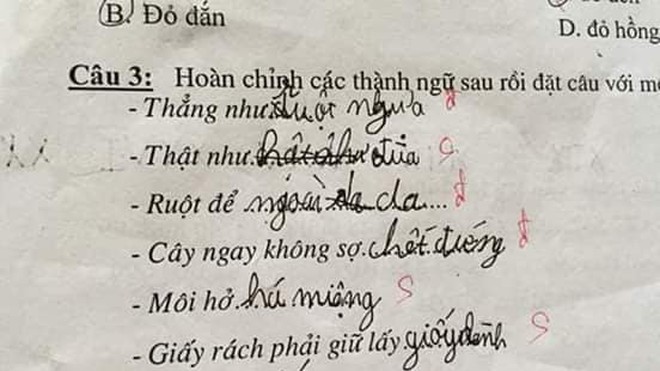 B. Đỏ đắn
D. đỏ hồng
Câu 3: Hoàn chỉnh các thành ngữ sau rồi đặt câu với
- Thẳng như ruột ngựa đ
- Thật như đùa S
- Ruột để ngoài da... đ
- Cây ngay không sợ chết đướng đ
- Môi hở há miệng S
- Giấy rách phải giữ lấy giấy dành S